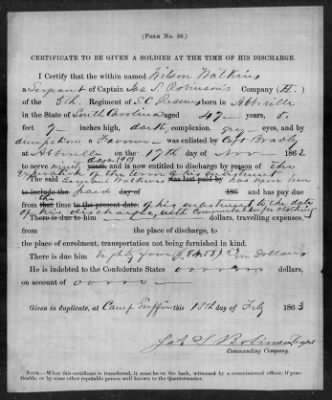 (FORM No. 58.)
CERTIFICATE TO BE GIVEN A SOLDIER AT THE TIME OF HIS DISCHARGE.
I Certify that the within named Wilson Watkins
a Sergeant of Captain Jas S. Robinson's Company (H.)
of the 5th Regiment of S.C. Reserves, born in Abbeville
in the State of South Carolina, aged 47 years, 5.
feet 7 inches high, dark complexion, grey eyes, and by
occupation a Farmer was enlisted by
at Abbeville on the 17th day of Novr 1862
to serve ninety days (90) years, and is now entitled to discharge by reason of the
expiration of the term of his enlistment
The said Sergeant Watkins was last paid by has been
to include the paid day of 186 and has pay due
from that time to the present date. of his enlistment to the date
of his discharge, with commutation for clothing
There is due to him dollars, travelling expenses,
from the place of discharge, to
the place of enrolment, transportation not being furnished in kind.
There is due him Dollars
He is indebted to the Confederate States dollars,
on account of
Given in duplicate, at Camp this 15th day of Feby 1863
Jas S Robinson Capt
Commanding Company.
NOTE.—When this certificate is transferred, it must be on the back, witnessed by a commissioned officer, if practicable, or by some other reputable person well known to the Quartermaster.